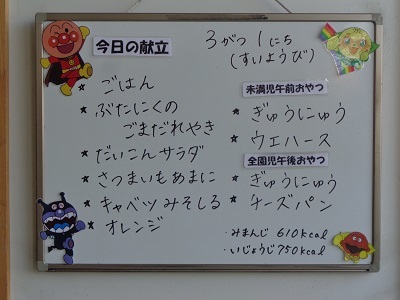 今日の献立
3がつ1にち
(すいようび)
★ ごはん
★ ぶたにくの
ごまだれやき
★ だいこんサラダ
★ さつまいもあまに
★ キャベツみそしる
★ オレンジ
未満児午前おやつ
★ ぎゅうにゅう
★ ウエハース
全園児午後おやつ
★ ぎゅうにゅう
★ チーズパン
・みまんじ 610kcal
・いじょうじ 750kcal